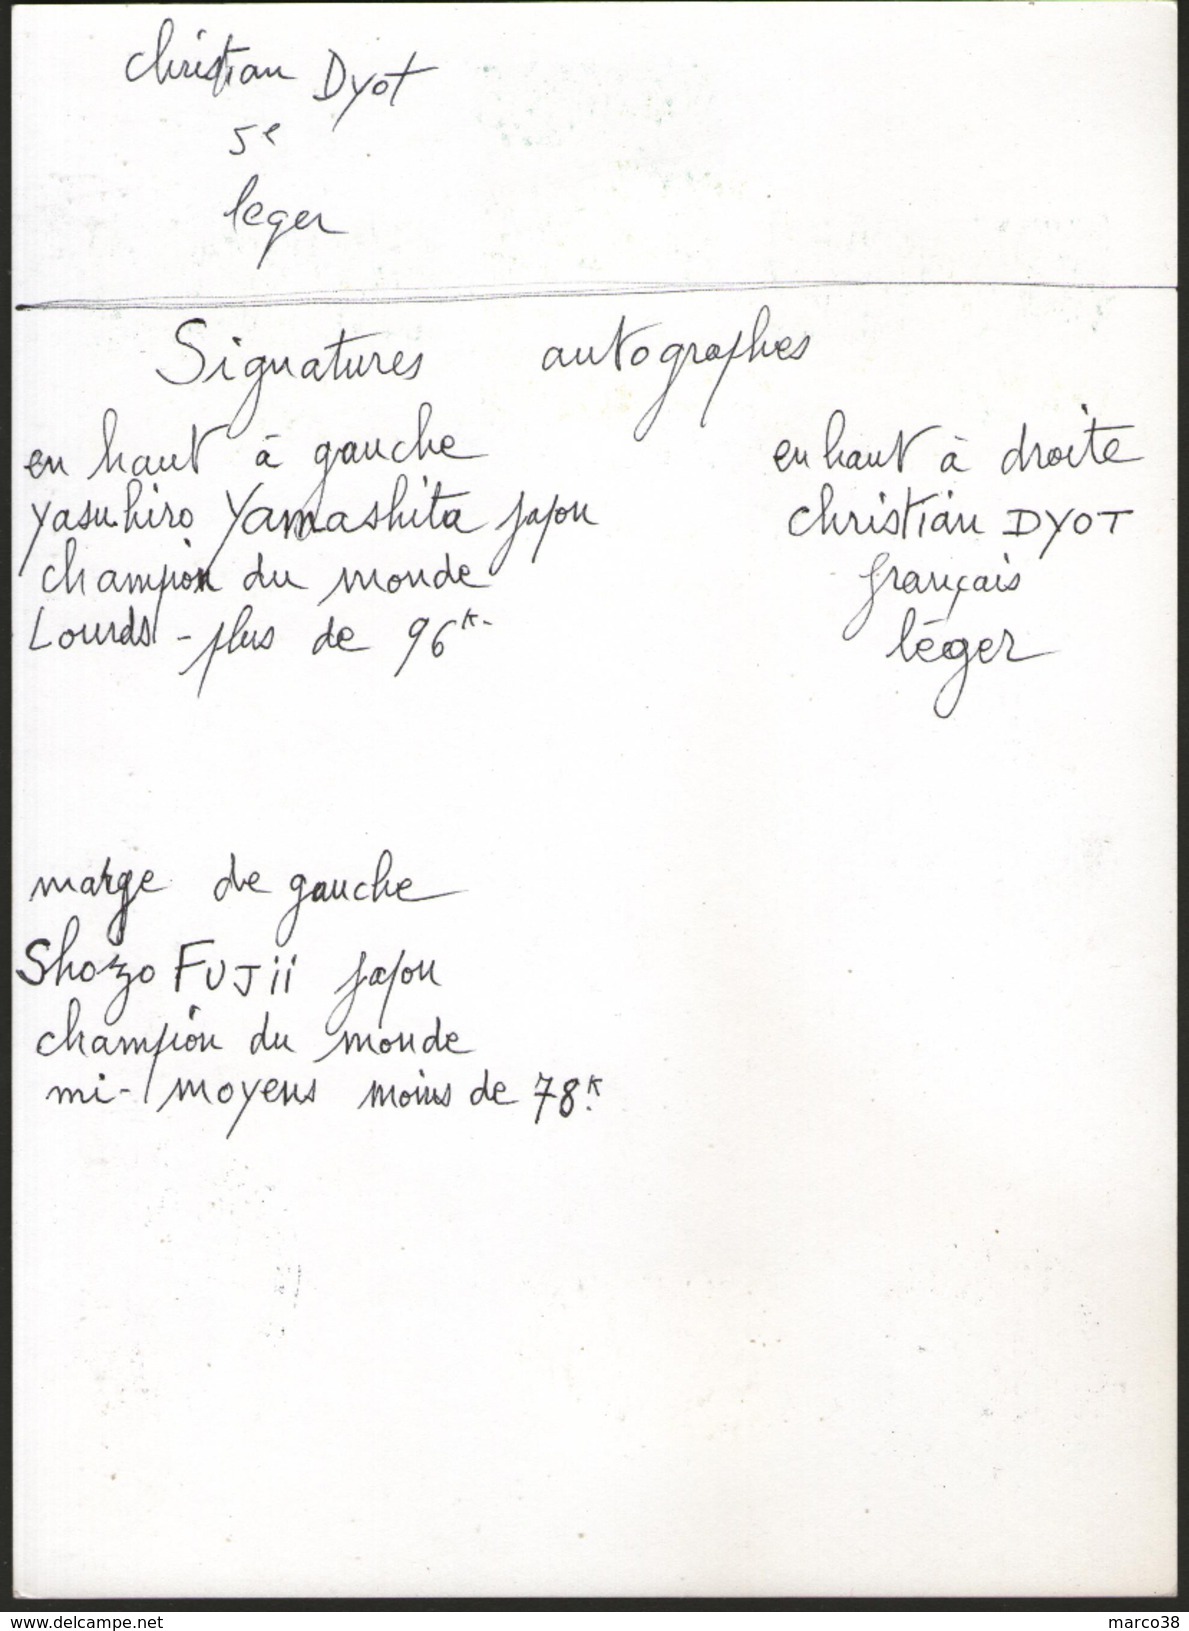 Christian Dyot
5e
leger
Signatures autographes
en haut à gauche
Yasuhiro Yamashita Japon
champion du monde
Lourds - plus de 96K-
en haut à droite
Christian DYOT
français
léger
marge de gauche
Shozo FUJii Japon
champion du monde
mi-moyens moins de 78K.
www.delcampe.net
marco38